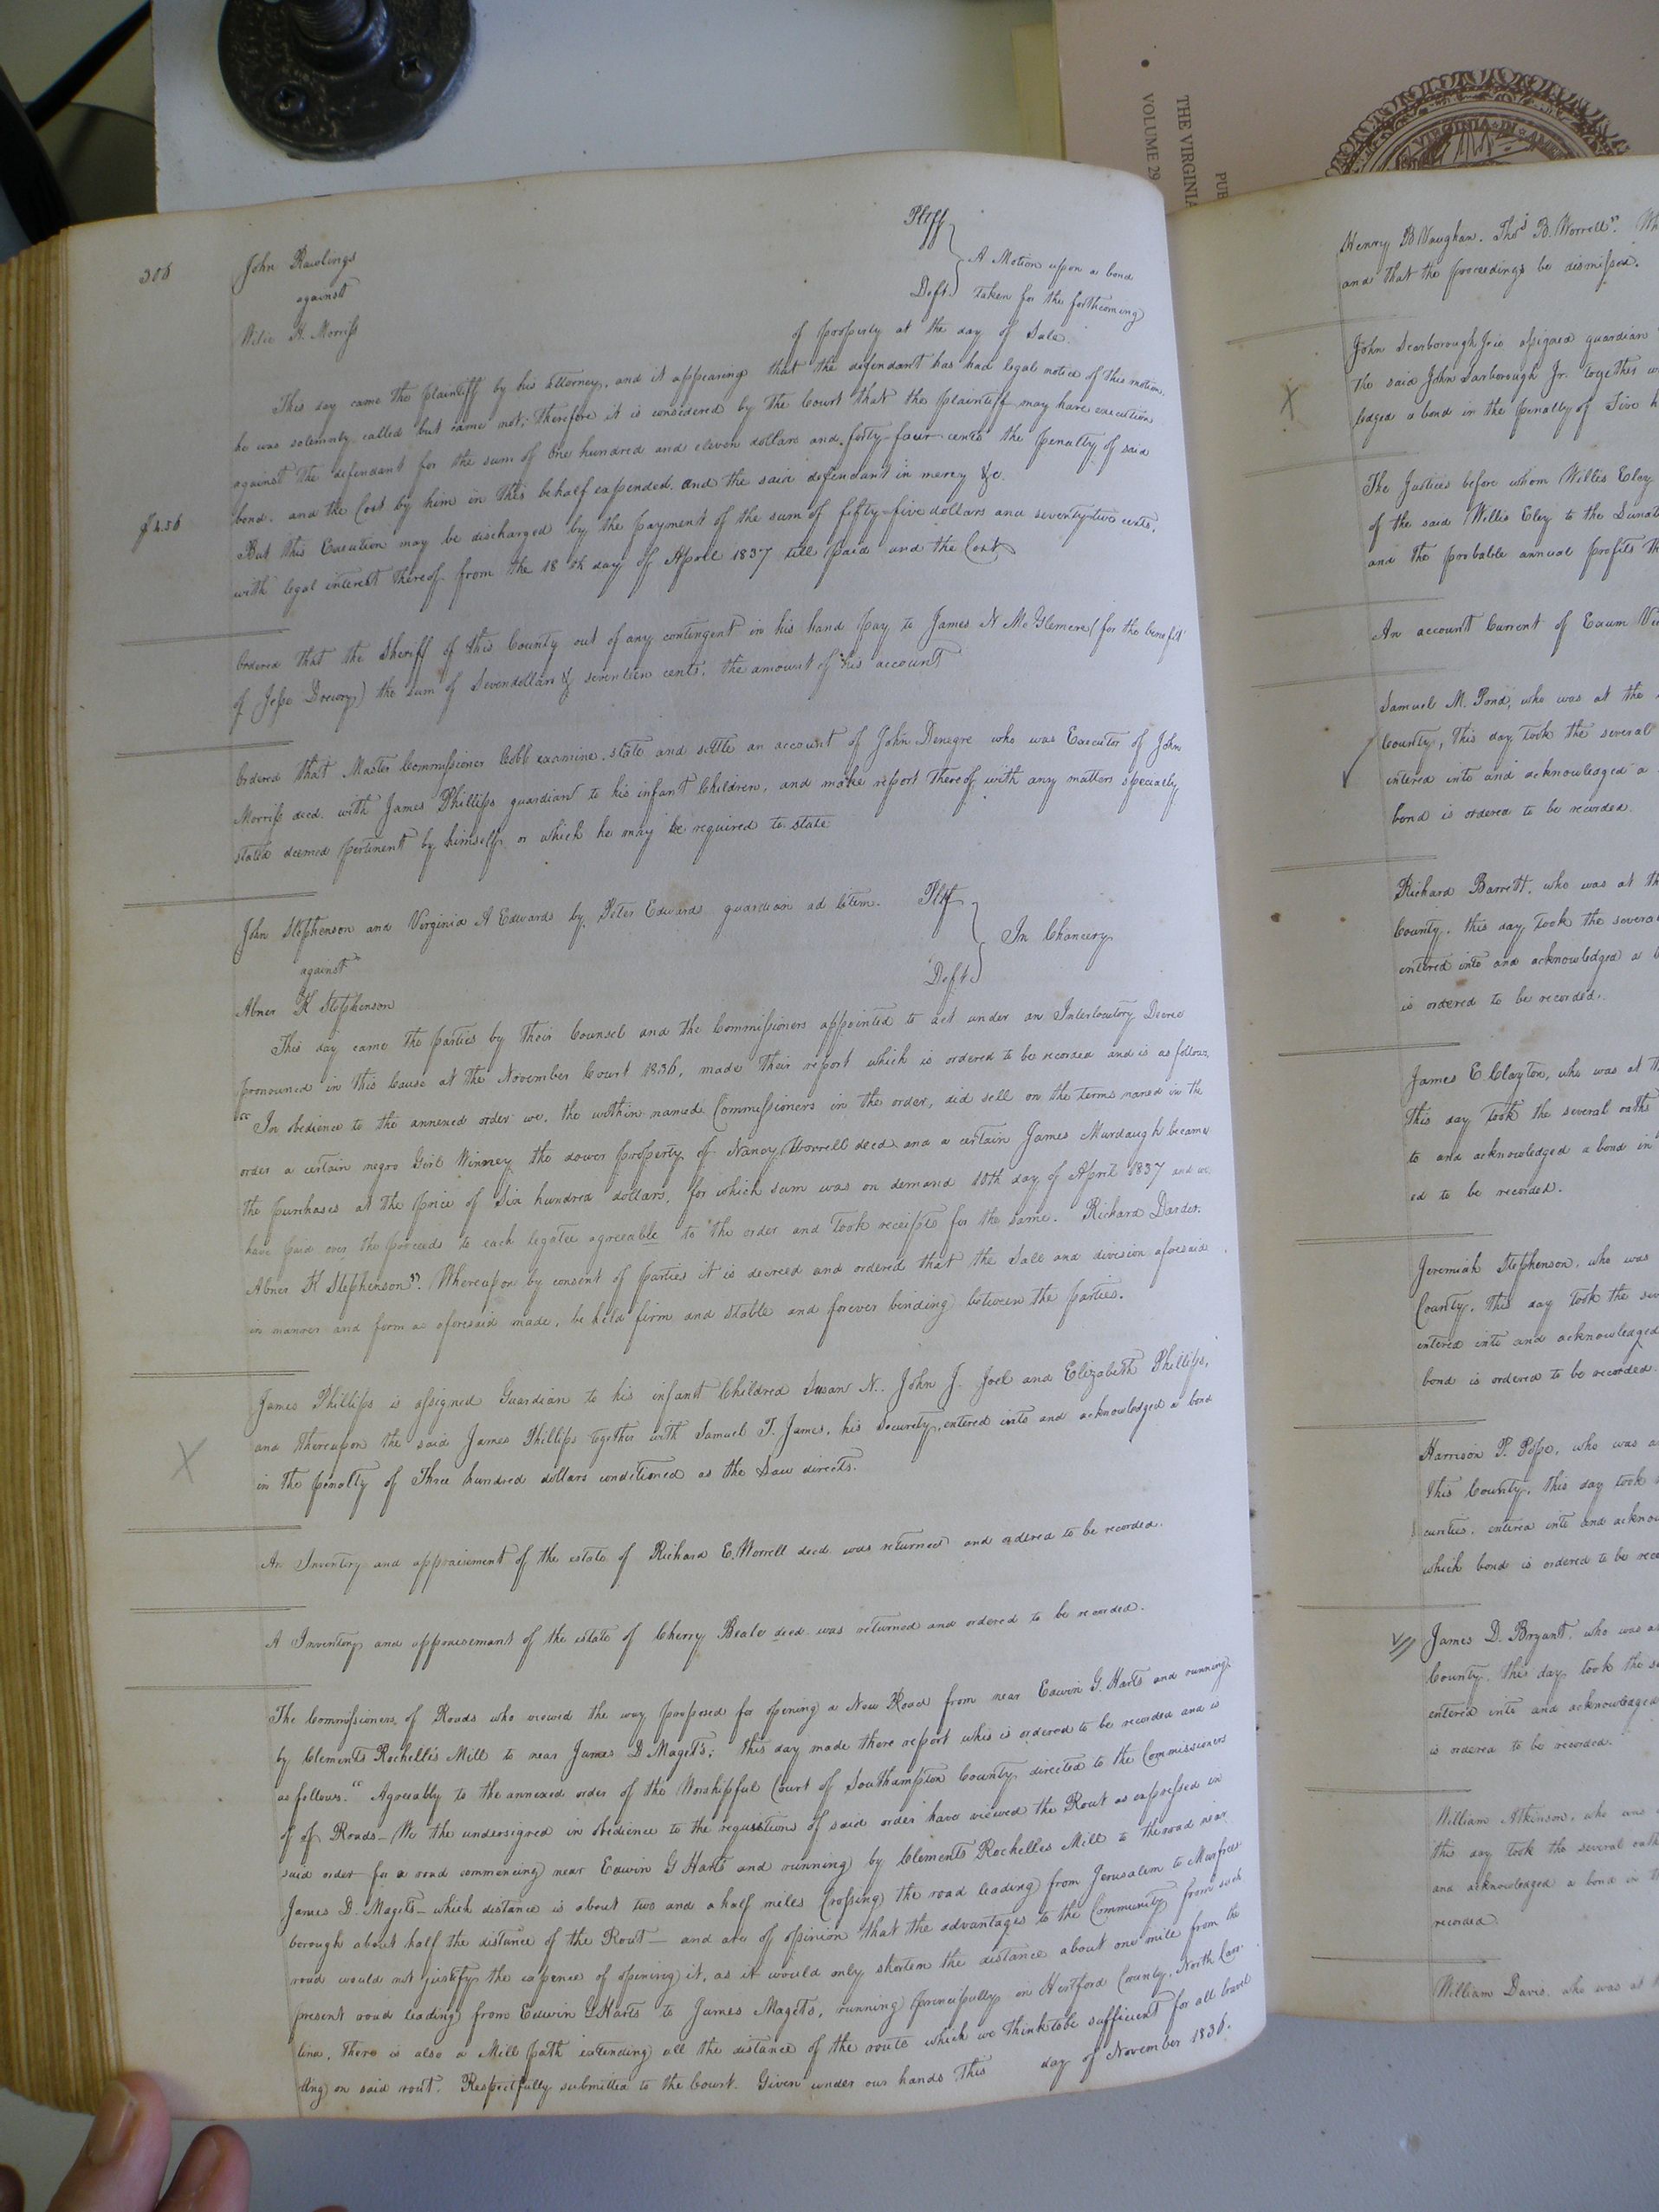 PUB
THE VIRGINIA
VOLUME 29
VIRGINIA · IN · AM
306
John Rawlings Pltff
against A Motion upon a bond
Wilie H. Morriss Deft. taken for the forthcoming
of property at the day of Sale.
This day came the plaintiff by his attorney, and it appearing that the defendant has had legal notice of this motion,
he was solemnly called but came not; therefore it is considered by the Court that the plaintiff may have execution
against the defendant for the sum of One hundred and eleven dollars and forty-four cents the penalty of said
bond. and the Cost by him in this behalf expended. and the said defendant in mercy &c.
$4.56
But this Execution may be discharged by the payment of the sum of fifty-five dollars and seventy-two cents,
with legal interest thereof from the 18th day of April 1837 till paid and the Costs
Ordered that the Sheriff of this County out of any contingent in his hand pay to James N McGlemere (for the benefit
of Jesse Drewry) the sum of Seven dollars & seventeen cents, the amount of his account
Ordered that Master Commissioner Cobb examine, state and settle an account of John Denegre who was Executor of John
Morriss decd. with James Phillips guardian to his infant Children, and make report thereof, with any matters specially
stated deemed pertinent by himself, or which he may be required to state
John Stephenson and Virginia A Edwards by Peter Edwards guardian ad litem. Pltf
against In Chancery
Abner K Stephenson Deft.
This day came the parties by their Counsel and the Commissioners appointed to act under an Interlocutory Decree
pronounced in this Cause at the November Court 1836, made their report which is ordered to be recorded and is as follows,
"In obedience to the annexed order we, the within named Commissioners in the order, did sell on the terms named in the
order a certain negro Girl Winney the dower property of Nancy Worrell decd. and a certain James Murdaugh became
the purchases at the price of Six hundred dollars, for which sum was on demand 10th day of April 1837 and we
have paid over the proceeds to each legatee agreeable to the order and took receipts for the same. Richard Darden.
Abner K Stephenson". Whereupon by consent of parties it is decreed and ordered that the Sale and division aforesaid
in manner and form as aforesaid made, be held firm and stable and forever binding between the parties.
James Phillips is assigned Guardian to his infant Childred Susan N. John J. Joel and Elizabeth Phillips,
and thereupon the said James Phillips together with Samuel T. James, his Security, entered into and acknowledged a bond
X
in the penalty of Three hundred dollars conditioned as the Law directs.
An Inventory and appraisement of the estate of Richard E. Worrell decd was returned and ordered to be recorded.
A Inventory and appraisement of the estate of Cherry Beale decd was returned and ordered to be recorded.
The Commissioners of Roads who viewed the way proposed for opening a New Road from near Edwin G. Harts and running
by Clements Rochelle's Mill to near James D Magets; this day made there report whis is ordered to be recorded and is
as follows. "Agreeably to the annexed order of the Worshipful Court of Southampton County directed to the Commissioners
of of Roads—We the undersigned in obedience to the requisitions of said order have viewed the Rout as expressed in
said order for a road commencing near Edwin G Harts and running by Clements Rochelles Mill to the road near
James D. Magets—which distance is about two and a half miles (crossing) the road leading from Jerusalem to Murfrees
borough about half the distance of the Rout— and are of opinion that the advantages to the Community from such
road would not justify the expence of opening it, as it would only shorten the distance about one mile from the
present road leading from Edwin G Harts to James Magets, running principally in Hertford County, North Caro-
lina, there is also a Mill path extending all the distance of the route which we think to be sufficient for all travel
ling on said rout. Respectfully submitted to the Court. Given under our hands this day of November 1836.
Henry B Vaughan. Thos. B. Worrell". Wh
and that the proceedings be dismissed.
John Scarborough Jr is assigned guardian
X
The said John Scarborough Jr. together w
ledged a bond in the penalty of Five h
The Justices before whom Willis Eley
of the said Willis Eley to the Lunat
and the probable annual profits th
An account Current of Exum
Samuel M. Pond, who was at the
County, this day took the several
entered into and acknowledged a
bond is ordered to be recorded.
Richard Barrett, who was at th
County, this day took the several
entered into and acknowledged a b
is ordered to be recorded.
James E Clayton, who was at th
this day took the several oaths
to and acknowledged a bond in
ed to be recorded.
Jeremiah Stephenson, who was
County, this day took the sev
entered into and acknowledged
bond is ordered to be recorded.
Harrison P. Pope, who was a
this County, this day took
curities, entered into and acknow
which bond is ordered to be rec
James D. Bryant, who was a
County, this day took the s
entered into and acknowledged
is ordered to be recorded.
William Atkinson, who was
this day took the several oath
and acknowledged a bond in th
recorded.
William Davis, who was at